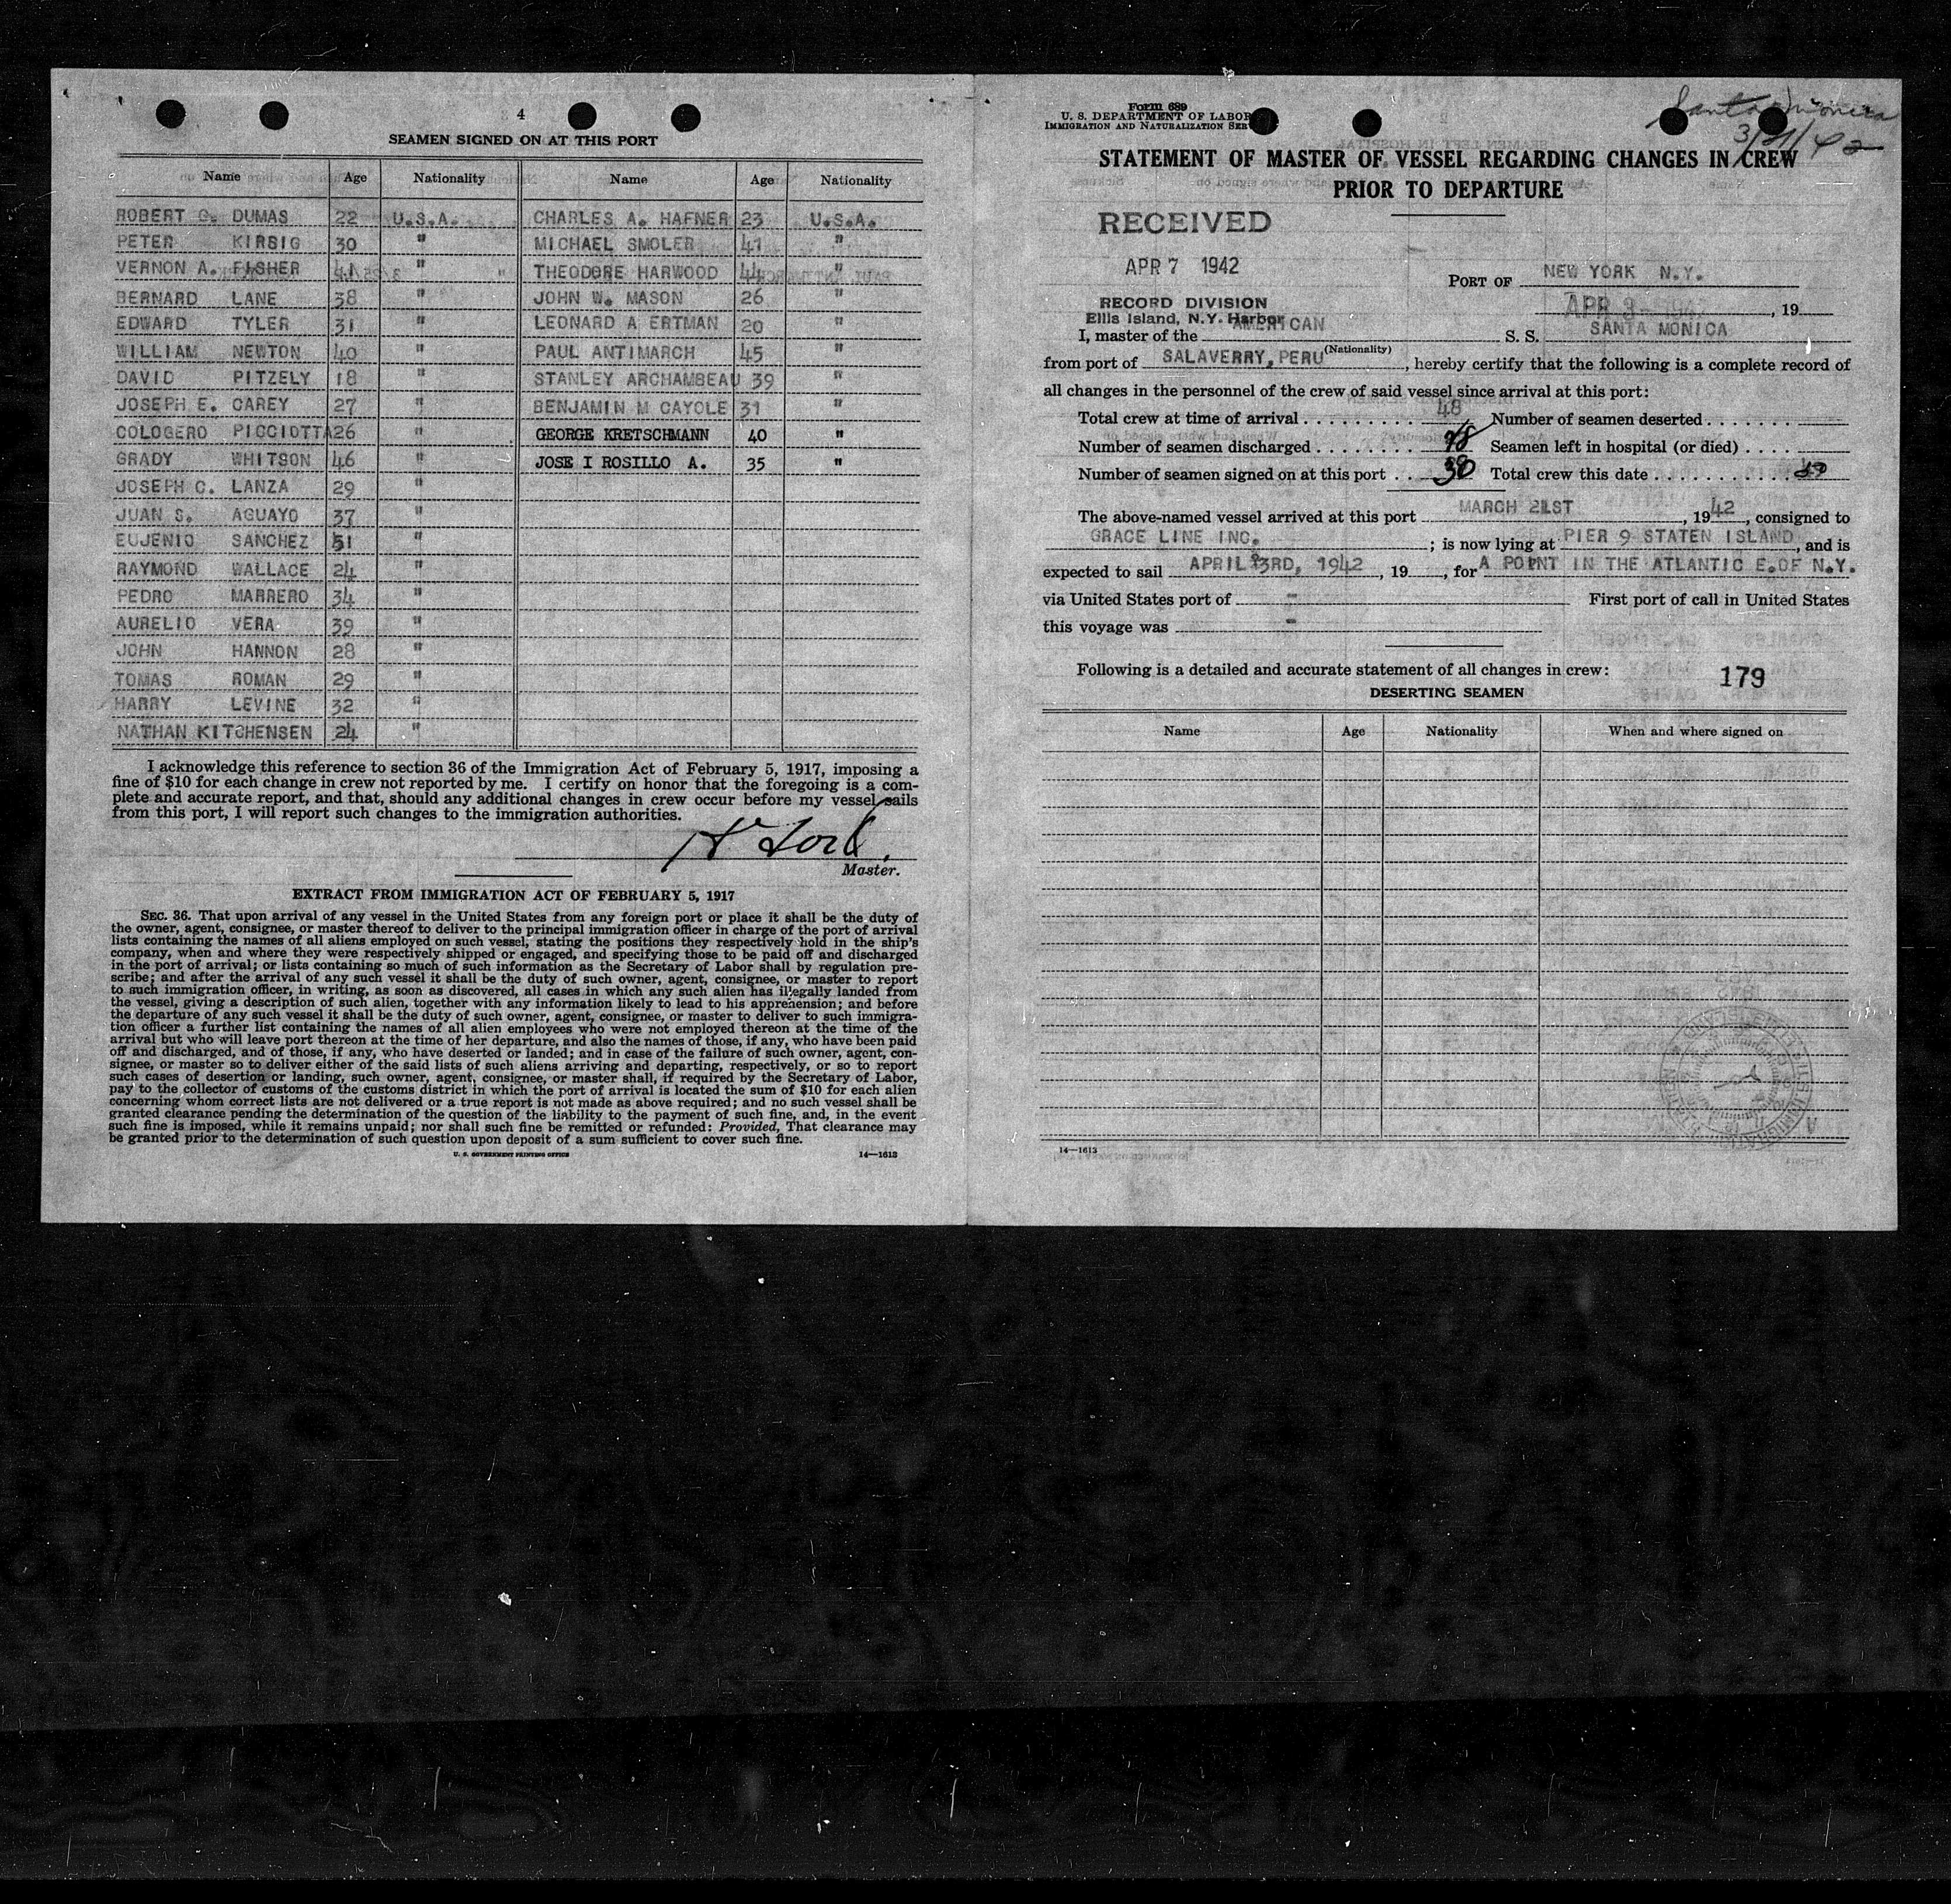 4
SEAMEN SIGNED ON AT THIS PORT
Name Age Nationality Name Age Nationality
ROBERT C. DUMAS 22 U.S.A. CHARLES A. HAFNER 23 U.S.A.
PETER KIRSIG 30 " MICHAEL SMOLER 41 "
VERNON A. FISHER 41 " THEODORE HARWOOD 44 "
BERNARD LANE 38 " JOHN W. MASON 26 "
EDWARD TYLER 31 " LEONARD A ERTMAN 20 "
WILLIAM NEWTON 40 " PAUL ANTIMARCH 45 "
DAVID PITZELY 18 " STANLEY ARCHAMBEAU 39 "
JOSEPH E. CAREY 27 " BENJAMIN M CAYOLE 31 "
COLOGERO PICCIOTTA 26 " GEORGE KRETSCHMANN 40 "
GRADY WHITSON 46 " JOSE I ROSILLO A. 35 "
JOSEPH C. LANZA 29 "
JUAN S. AGUAYO 37 "
EUJENIO SANCHEZ 51 "
RAYMOND WALLACE 24 "
PEDRO MARRERO 34 "
AURELIO VERA 39 "
JOHN HANNON 28 "
TOMAS ROMAN 29 "
HARRY LEVINE 32 "
NATHAN KITCHENSEN 24 "
I acknowledge this reference to section 36 of the Immigration Act of February 5, 1917, imposing a
fine of $10 for each change in crew not reported by me. I certify on honor that the foregoing is a com-
plete and accurate report, and that, should any additional changes in crew occur before my vessel sails
from this port, I will report such changes to the immigration authorities.
Master.
EXTRACT FROM IMMIGRATION ACT OF FEBRUARY 5, 1917
SEC. 36. That upon arrival of any vessel in the United States from any foreign port or place it shall be the duty of
the owner, agent, consignee, or master thereof to deliver to the principal immigration officer in charge of the port of arrival
lists containing the names of all aliens employed on such vessel, stating the positions they respectively hold in the ship's
company, when and where they were respectively shipped or engaged, and specifying those to be paid off and discharged
in the port of arrival; or lists containing so much of such information as the Secretary of Labor shall by regulation pre-
scribe; and after the arrival of any such vessel it shall be the duty of such owner, agent, consignee, or master to report
to such immigration officer, in writing, as soon as discovered, all cases in which any such alien has illegally landed from
the vessel, giving a description of such alien, together with any information likely to lead to his apprehension; and before
the departure of any such vessel it shall be the duty of such owner, agent, consignee, or master to deliver to such immigra-
tion officer a further list containing the names of all alien employees who were not employed thereon at the time of the
arrival but who will leave port thereon at the time of her departure, and also the names of those, if any, who have been paid
off and discharged, and of those, if any, who have deserted or landed; and in case of the failure of such owner, agent, con-
signee, or master so to deliver either of the said lists of such aliens arriving and departing, respectively, or so to report
such cases of desertion or landing, such owner, agent, consignee, or master shall, if required by the Secretary of Labor,
pay to the collector of customs of the customs district in which the port of arrival is located the sum of $10 for each alien
concerning whom correct lists are not delivered or a true report is not made as above required; and no such vessel shall be
granted clearance pending the determination of the question of the liability to the payment of such fine, and, in the event
such fine is imposed, while it remains unpaid; nor shall such fine be remitted or refunded: Provided, That clearance may
be granted prior to the determination of such question upon deposit of a sum sufficient to cover such fine.
U. S. GOVERNMENT PRINTING OFFICE 14—1613
Form 689
U. S. DEPARTMENT OF LABOR
IMMIGRATION AND NATURALIZATION SER
Santa Monica
3/21/42
STATEMENT OF MASTER OF VESSEL REGARDING CHANGES IN CREW
PRIOR TO DEPARTURE
RECEIVED
APR 7 1942
RECORD DIVISION
Ellis Island, N.Y. Harbor
PORT OF NEW YORK N.Y.
APR 3- 1942, 19
I, master of the AMERICAN S. S. SANTA MONICA
(Nationality)
from port of SALAVERRY, PERU, hereby certify that the following is a complete record of
all changes in the personnel of the crew of said vessel since arrival at this port:
Total crew at time of arrival 48 Number of seamen deserted
Number of seamen discharged 28 Seamen left in hospital (or died)
Number of seamen signed on at this port 30 Total crew this date 50
The above-named vessel arrived at this port MARCH 21ST, 1942, consigned to
GRACE LINE INC.; is now lying at PIER 9 STATEN ISLAND, and is
expected to sail APRIL 3RD, 1942, 19, for A POINT IN THE ATLANTIC E.OF N.Y.
via United States port of - First port of call in United States
this voyage was -
Following is a detailed and accurate statement of all changes in crew:
179
DESERTING SEAMEN
Name Age Nationality When and where signed on
14—1613